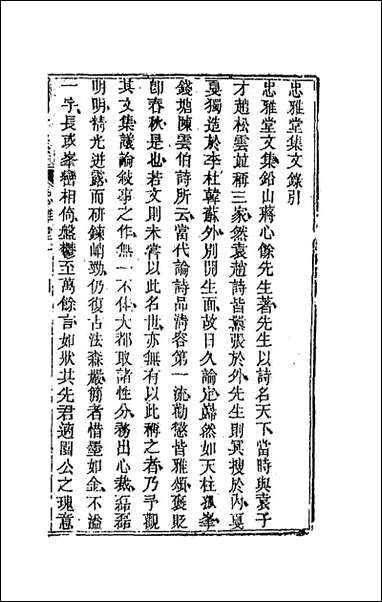 忠雅堂集文錄引
忠雅堂文集鉛山蔣心餘先生著先生以詩名天下當時與袁子
才趙松雲竝稱三家然袁趙詩皆囂張於外先生則冥搜於內戛
戛獨造於李杜韓蘇外別開生面故日久論定巋然如天柱孤峯
錢塘陳雲伯詩所云當代論詩品清容第一流勸懲皆雅頌褒貶
即春秋是也若文則未嘗以此名世亦無有以此稱之者乃予觀
其文集議論敘事之作無一不佳大都取諸性分務出心裁磊磊
明明精光迸露而研鍊峭勁仍復古法森嚴簡者惜墨如金不溢
一字長或峯巒相倚盤鬱至萬餘言如狀其先君適園公之瑰意